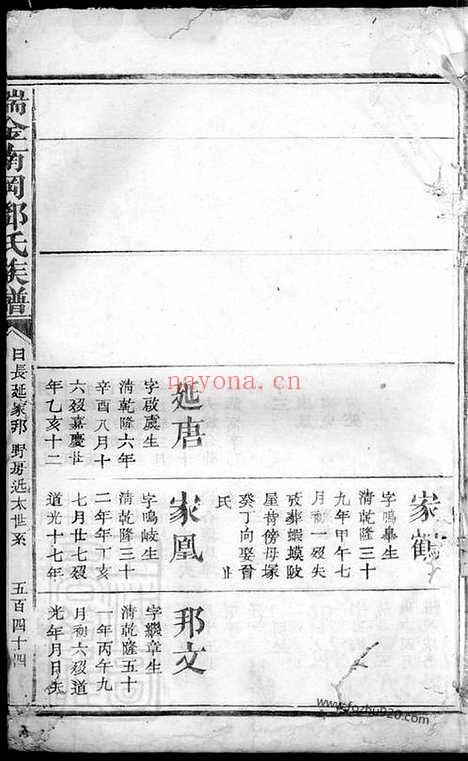 家鶴
字鳴臯生
清乾隆三十
九年甲午七
月初一歿失
攷葬蝦蟆陂
屋背傍母塚
癸丁向娶曾
氏
廷唐
字啟虞生
清乾隆六年
辛酉八月十
六歿嘉慶廿
年乙亥十二
家凰
字鳴岐生
清乾隆三十
二年丁亥
七月廿七歿
道光十七年
邦文
字繼章生
清乾隆五十
一年丙午九
月初六歿道
光年月日失
瑞金南岡鄒氏族譜
日長廷家邦
世系
五百四十四
nayona.cn
www.fozhu920.com